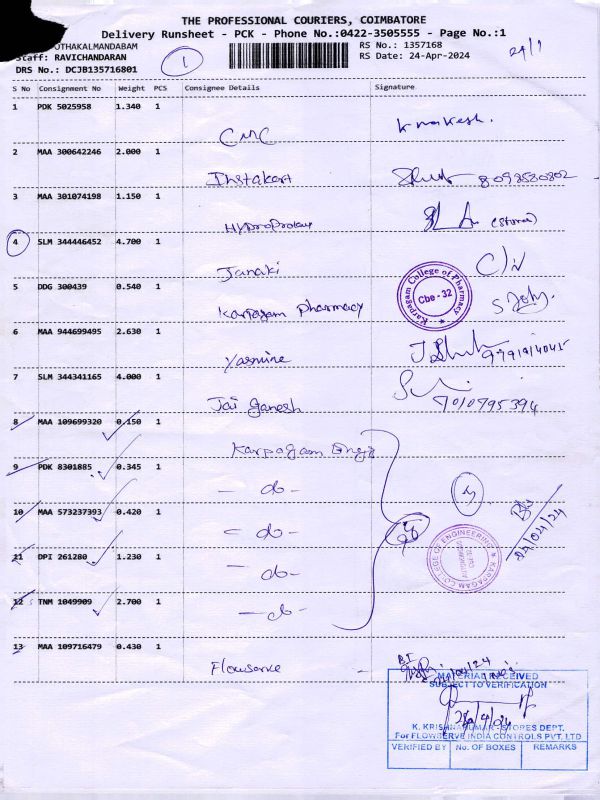 THE PROFESSIONAL COURIERS, COIMBATORE
Delivery Runsheet - PCK - Phone No.:0422-3505555 - Page No.:1
OTHAKALMANDABAM
Staff: RAVICHANDARAN
DRS No.: DCJB135716801
1
RS No.: 1357168
RS Date: 24-Apr-2024
S No Consignment No Weight PCS Consignee Details Signature
1 PDK 5025958 1.340 1
CMC
2 MAA 300642246 2.000 1
Instakart 8098580802
3 MAA 301074198 1.150 1
(Stores)
4 SLM 344446452 4.700 1
Janaki
5 DDG 300439 0.540 1
Karpagam Pharmacy
Karpagam College of Pharmacy
Cbe - 32
6 MAA 944699495 2.630 1
Yasmine
7 SLM 344341165 4.000 1
Jai Ganesh 7010795394
8 MAA 109699320 0.150 1
Karpagam Engg
9 PDK 8301885 0.345 1
- do -
10 MAA 573237393 0.420 1
- do -
24/04/24
11 DPI 261280 1.230 1
- do -
KARPAGAM COLLEGE OF ENGINEERING
12 TNM 1049909 2.700 1
- do -
13 MAA 109716479 0.430 1
MATERIAL RECEIVED
SUBJECT TO VERIFICATION
K. KRISHNAKUMAR - STORES DEPT.
For FLOWSERVE INDIA CONTROLS PVT. LTD
VERIFIED BY No. OF BOXES REMARKS